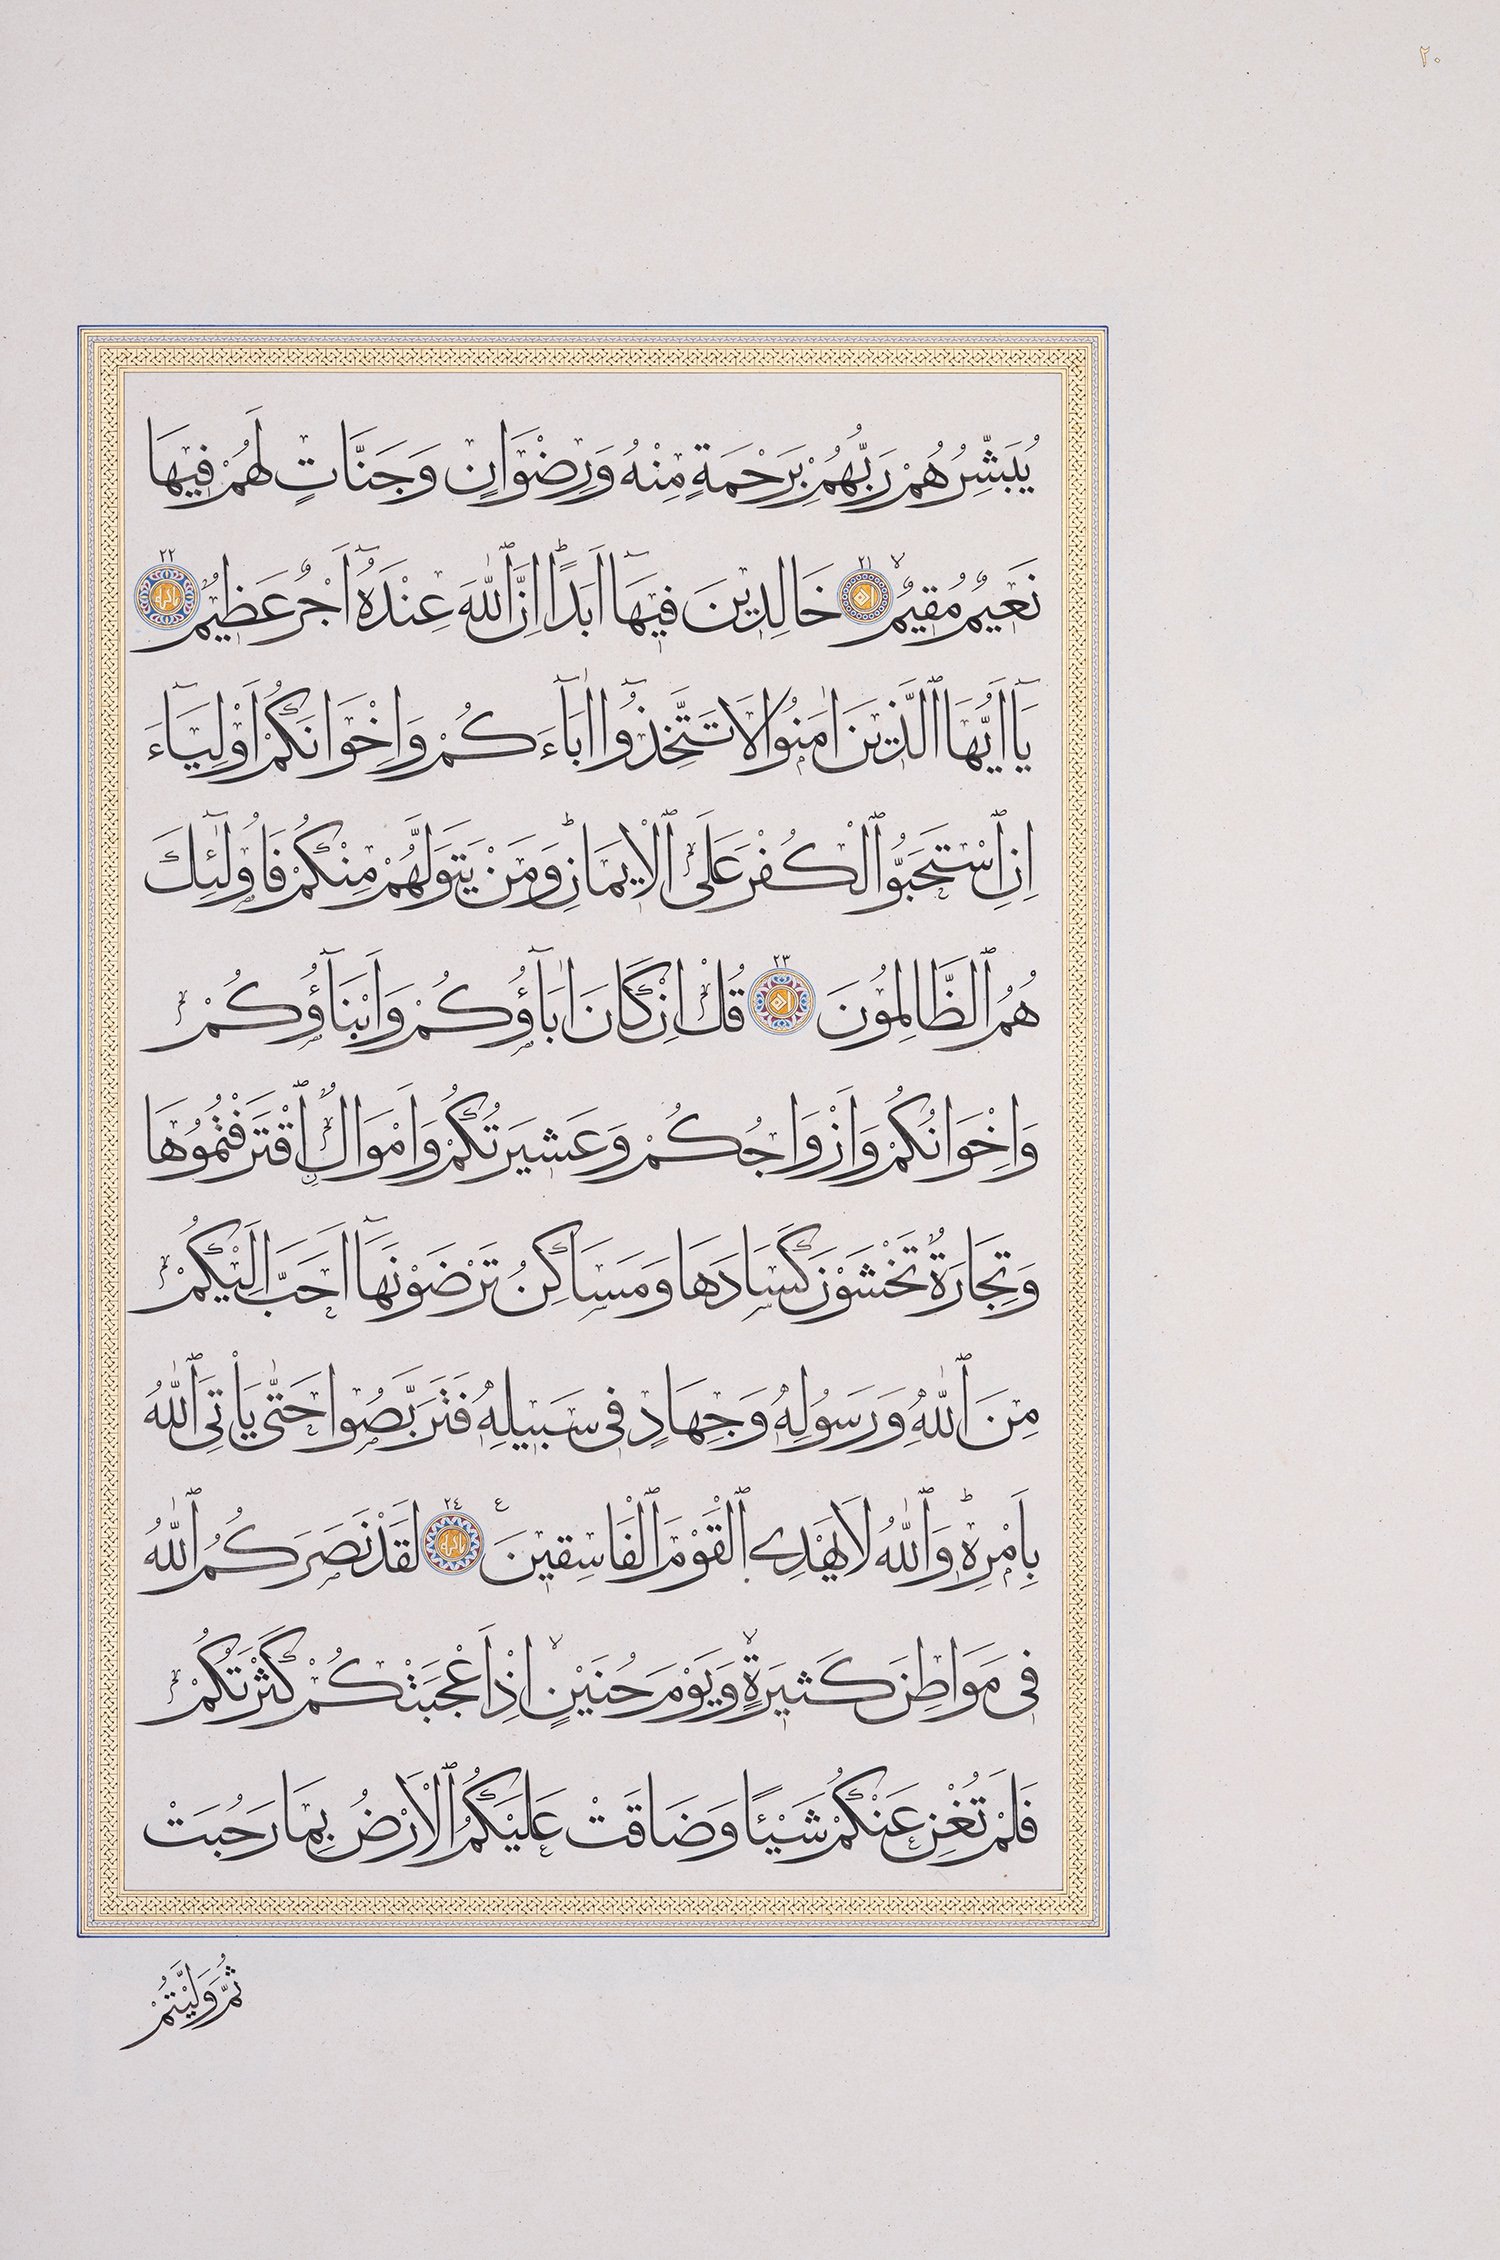 ٢٠
يُبَشِّرُهُمْ رَبُّهُمْ بِرَحْمَةٍ مِنْهُ وَرِضْوَانٍ وَجَنَّاتٍ لَهُمْ فِيهَا
نَعِيمٌ مُقِيمٌۙ ٢١ خَالِدِينَ فِيهَٓا اَبَدًاۜ اِنَّ ٱللّٰهَ عِنْدَهُٓ اَجْرٌ عَظِيمٌ ٢٢
يَٓا اَيُّهَا ٱلَّذِينَ اٰمَنُوا لَا تَتَّخِذُٓوا اٰبَٓاءَكُمْ وَاِخْوَانَكُمْ اَوْلِيَٓاءَ
اِنِ ٱسْتَحَبُّوا ٱلْكُفْرَ عَلَى ٱلْاِيمَانِۜ وَمَنْ يَتَوَلَّهُمْ مِنْكُمْ فَاُولٰٓئِكَ
هُمُ ٱلظَّالِمُونَ ٢٣ قُلْ اِنْ كَانَ اٰبَٓاؤُكُمْ وَاَبْنَٓاؤُكُمْ
وَاِخْوَانُكُمْ وَاَزْوَاجُكُمْ وَعَشِيرَتُكُمْ وَاَمْوَالٌۨ ٱقْتَرَفْتُمُوهَا
وَتِجَارَةٌ تَخْشَوْنَ كَسَادَهَا وَمَسَاكِنُ تَرْضَوْنَهَٓا اَحَبَّ اِلَيْكُمْ
مِنَ ٱللّٰهِ وَرَسُولِهِ وَجِهَادٍ فِى سَبِيلِهِ فَتَرَبَّصُوا حَتّٰى يَأْتِىَ ٱللّٰهُ
بِاَمْرِهِۜ وَٱللّٰهُ لَا يَهْدِى ٱلْقَوْمَ ٱلْفَاسِقِينَ ع ٢٤ لَقَدْ نَصَرَكُمُ ٱللّٰهُ
فِى مَوَاطِنَ كَثِيرَةٍۙ وَيَوْمَ حُنَيْنٍۙ اِذْ اَعْجَبَتْكُمْ كَثْرَتُكُمْ
فَلَمْ تُغْنِ عَنْكُمْ شَيْئًا وَضَاقَتْ عَلَيْكُمُ ٱلْاَرْضُ بِمَا رَحُبَتْ
ثُمَّ وَلَّيْتُمْ